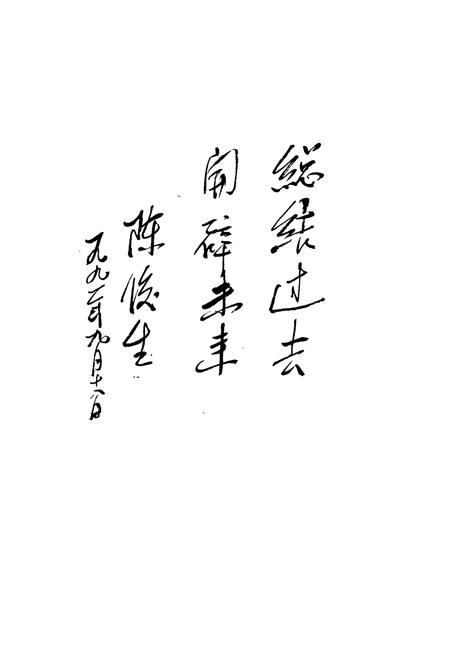 總结过去
開辟未来
陈俊生
一九九二年九月十八日